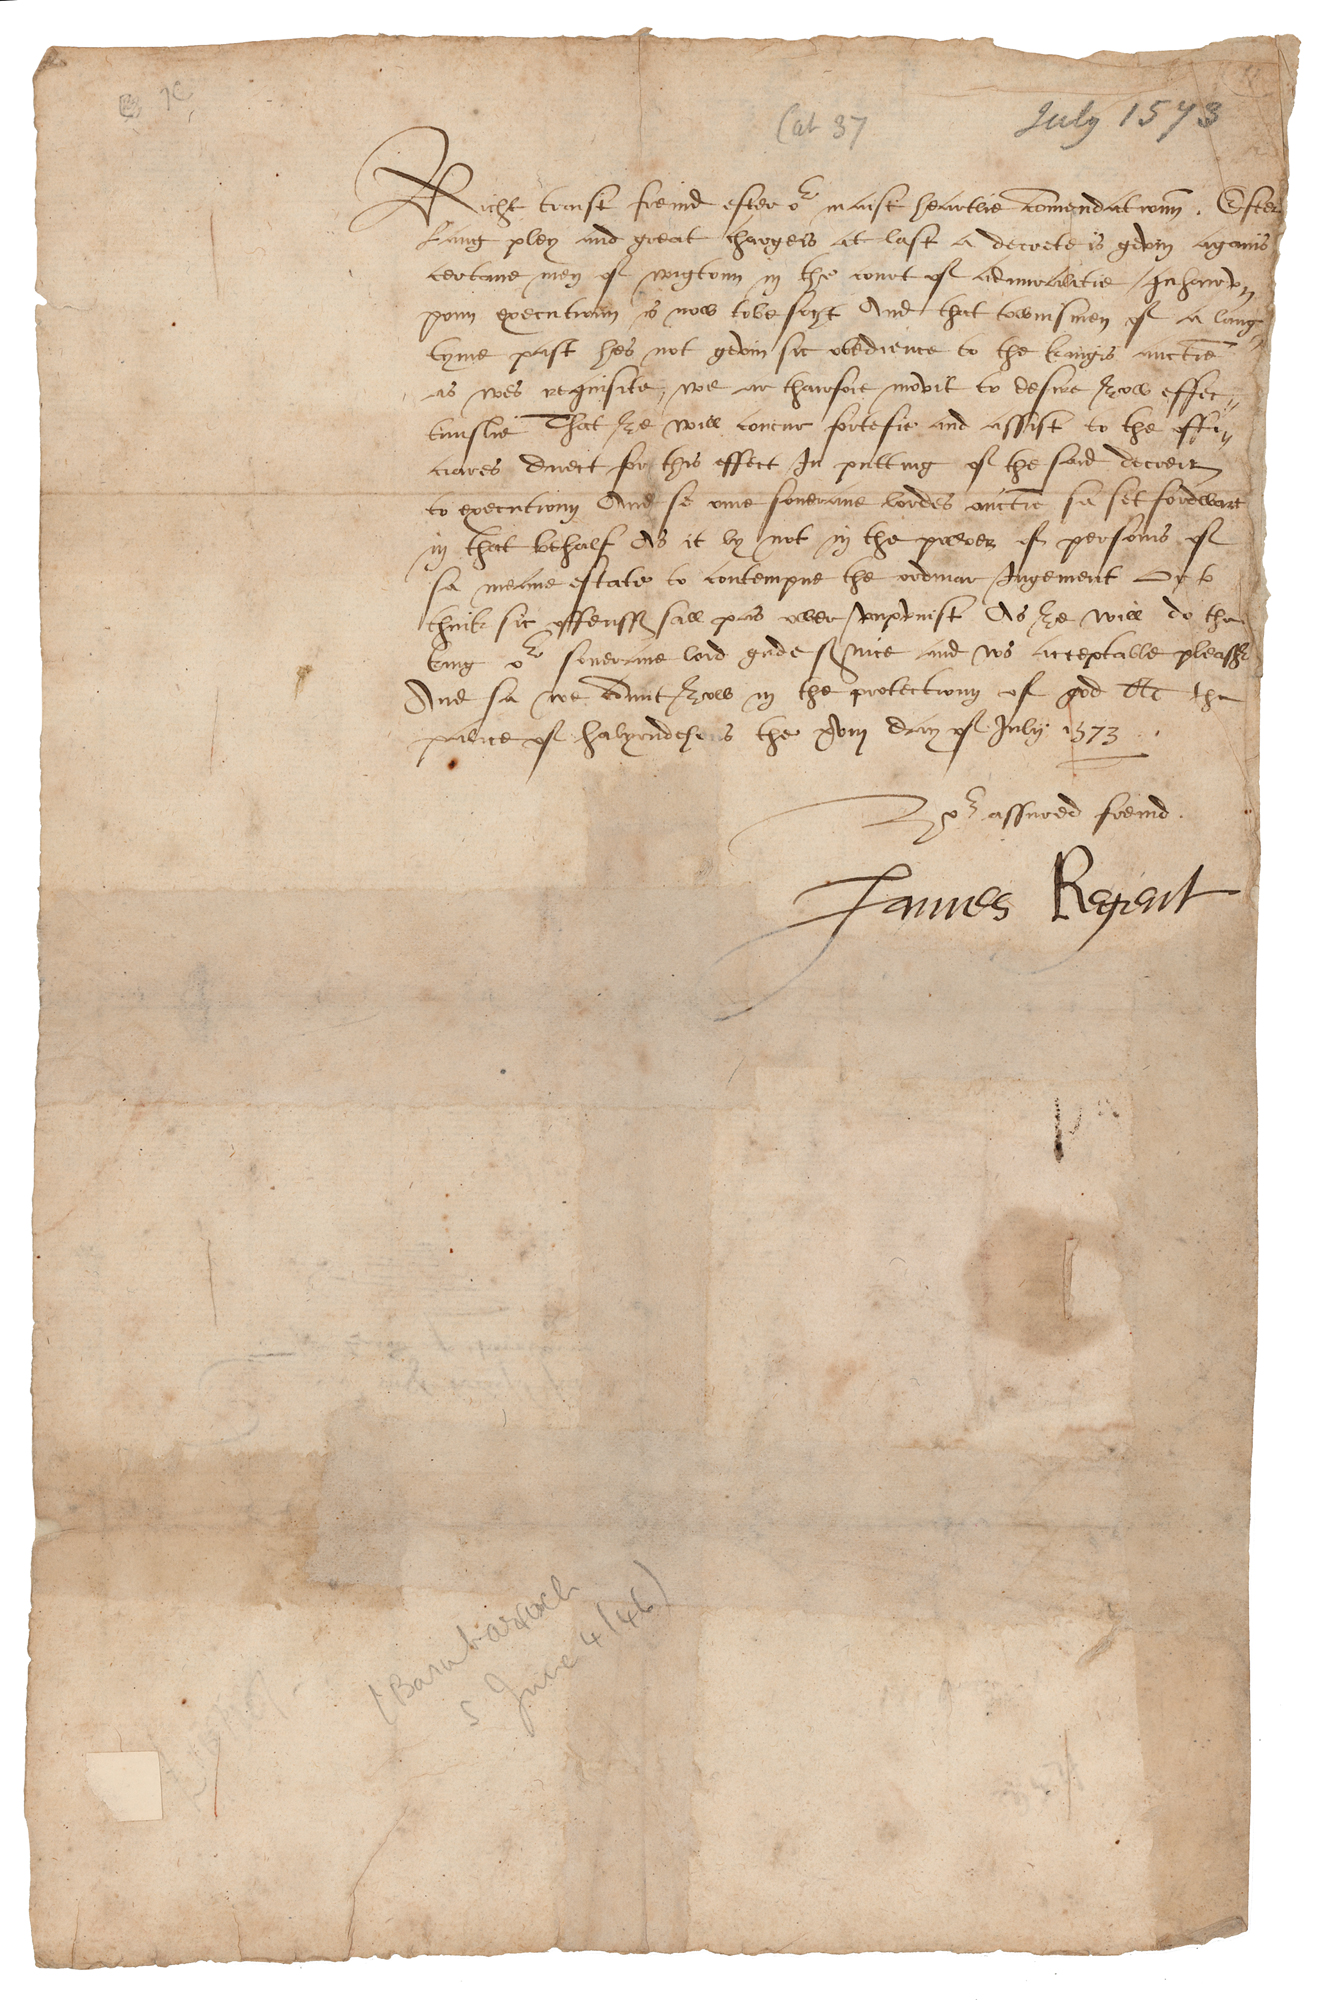 Cat 37
July 1573
Richt traist freind efter oʳ maist heartlie comendatioun. Efter
lang pley and great chargeis at last a decrete is gevin aganis
certane men of wigtoun in the court of admiralitie
poun executioun is now to be socht And that townismen of a lang
tyme past hes not gevin sic obedience to the kingis auctie
as wes requisite, we ar thairfoir movit to desire ȝow effec
tuuslie That ȝe will concur fortefie and assist to the offi
ciares direct for this effect In putting of the said decreit
to executioun And se oure soverane lordes auctie sa set fordwart
in that behalf As it ly not in the power of persouis of
sa meane estate to contempne the ordinar Jugement Or to
think sic offenss sall pas over unpunist As ȝe will do the
king oʳ soverane lord gude service and ws acceptable pleassʳ
And sa we comit ȝow in the protectioun of god At the
palice of halyrudehous the xviij day of July 1573
Ȝoʳ assured freind.
James Regent
(Barnbarroch
5 June 4 (46)